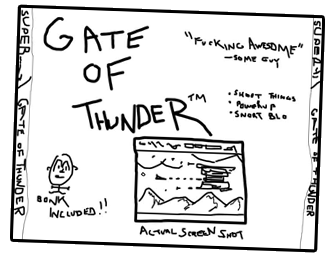 GATE
OF
THUNDER™
"FUCKING AWESOME"
—SOME GUY
• SHOOT THINGS
• POWERUP
• SNORT BLO
BONK
INCLUDED!!
ACTUAL SCREEN SHOT
GATE OF THUNDER
GATE OF THUNDER